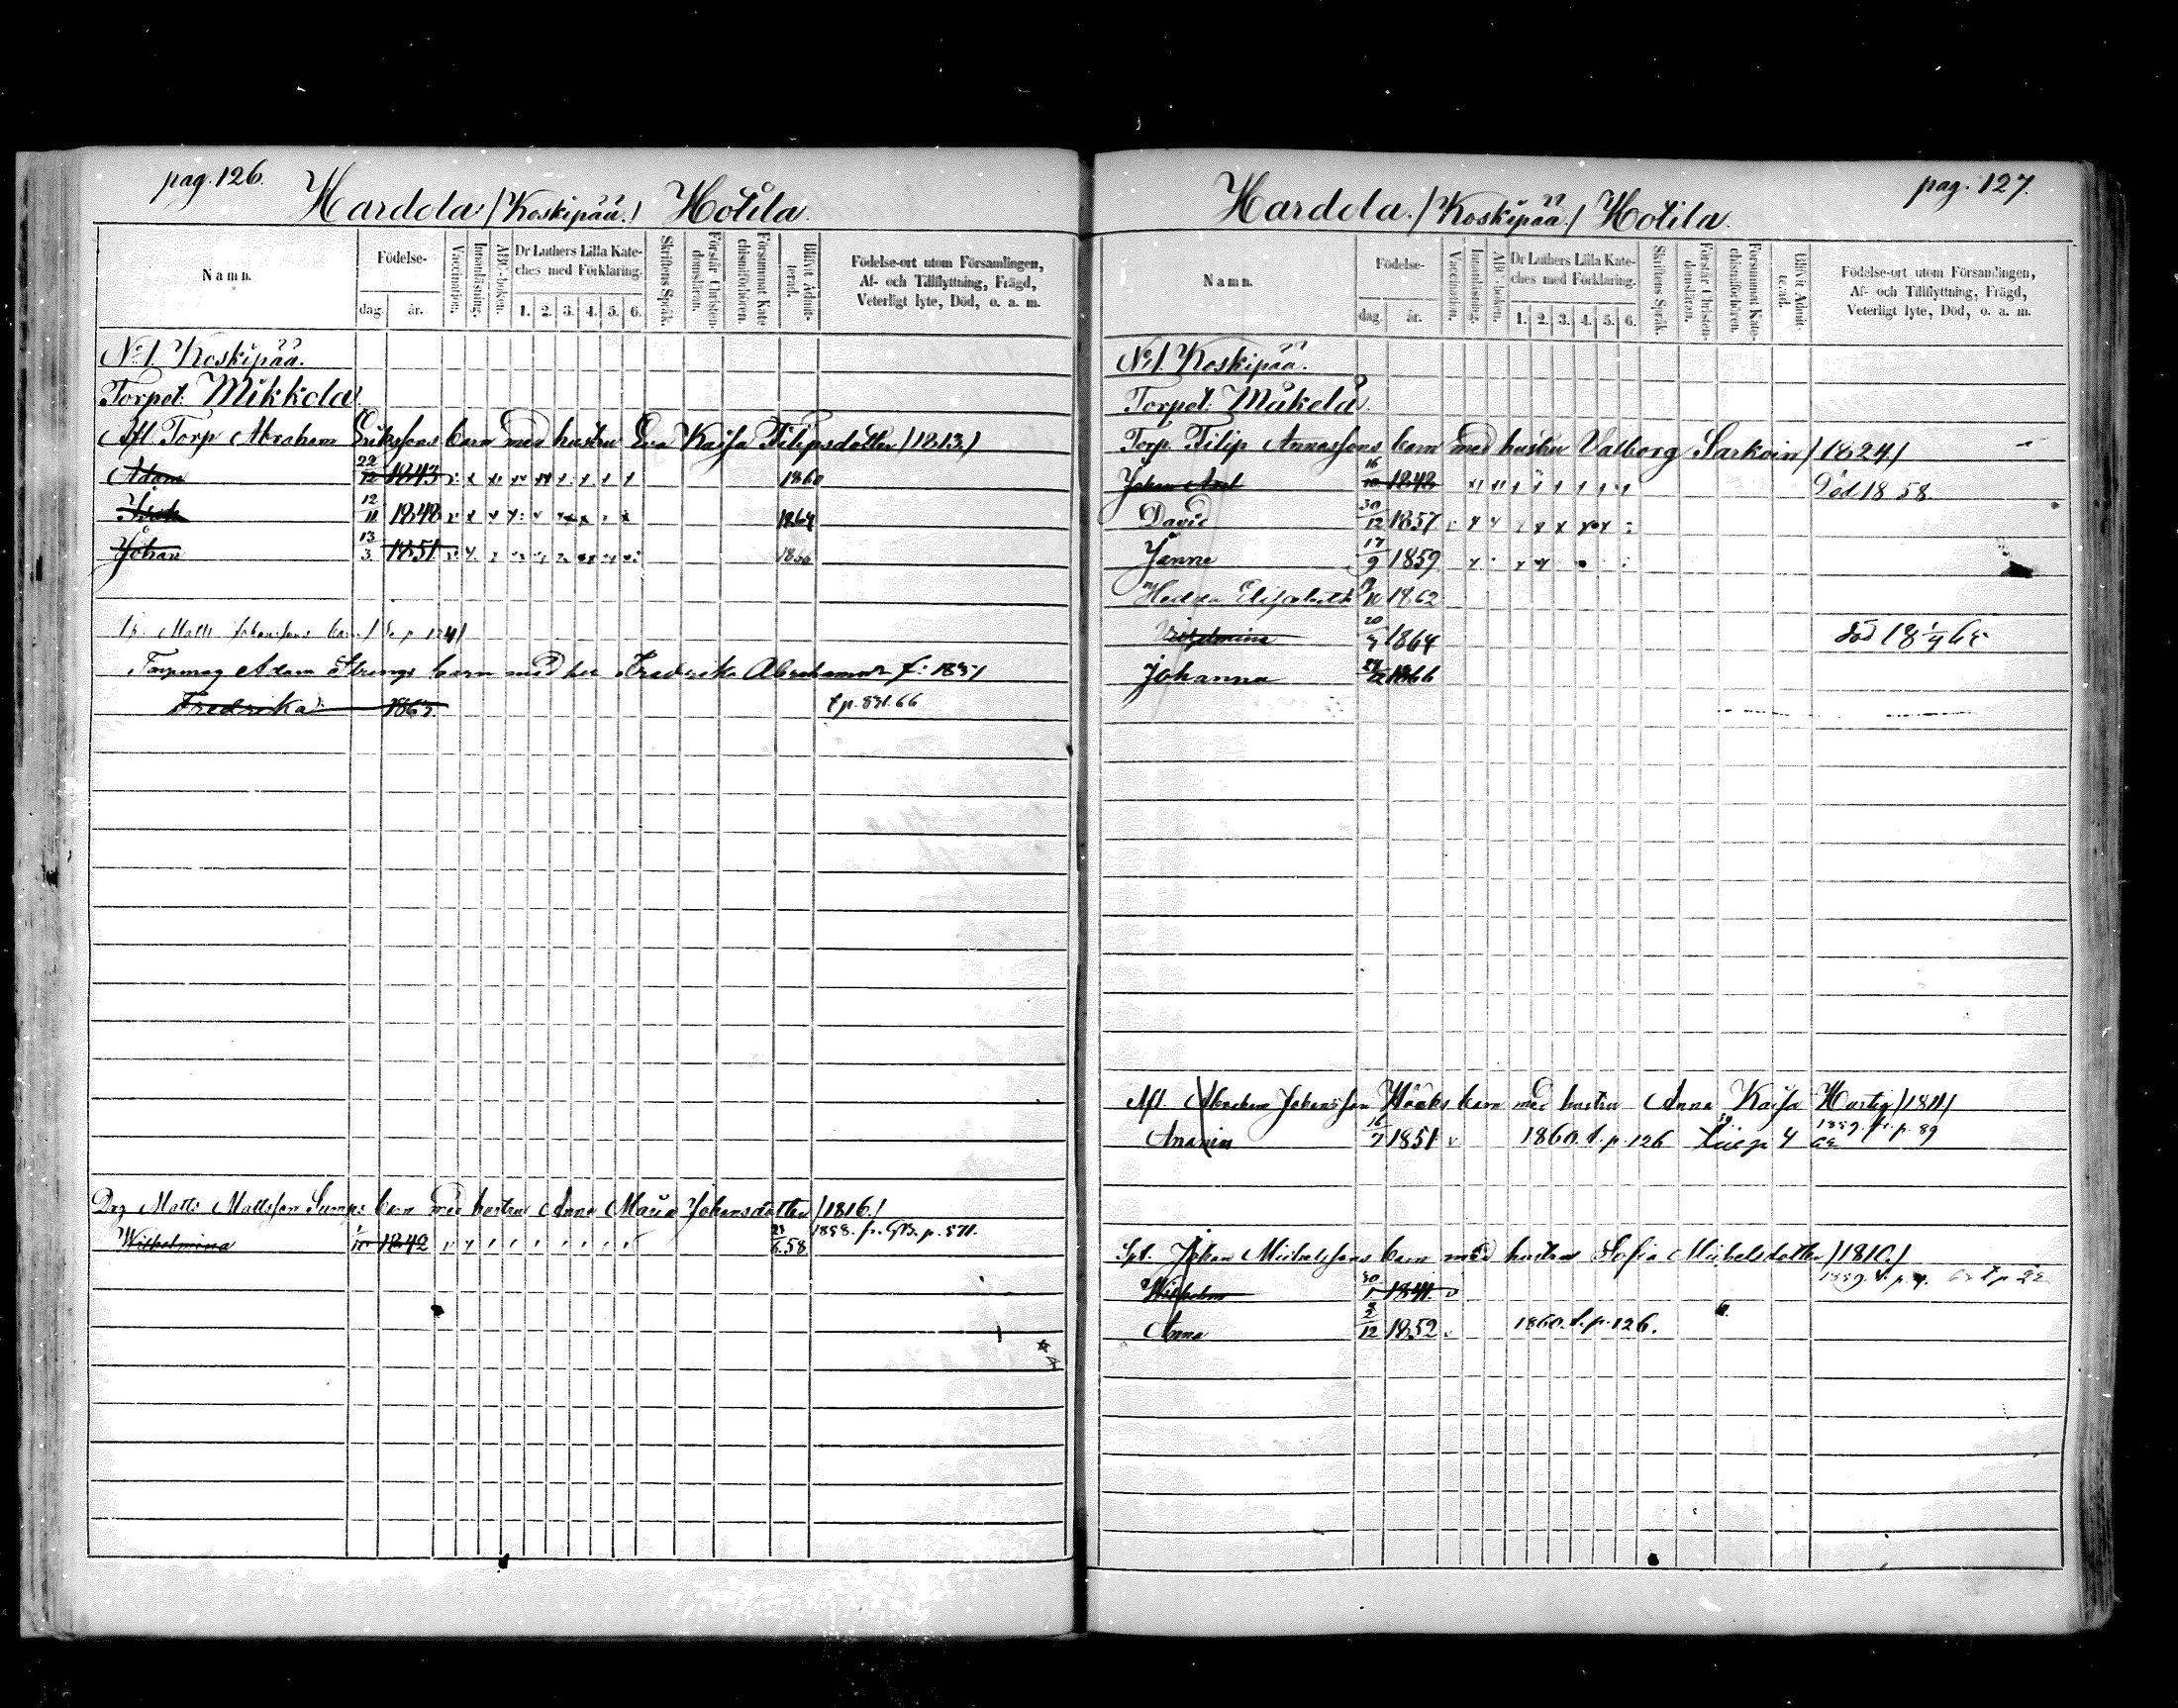 pag. 126.
Hardola /Koskipää./ Hotila.
Namn.
Födelse-
dag.
år.
Vaccination.
Innanläsning.
ABC-boken.
Dr Luthers Lilla Kate-
ches med Förklaring.
1. 2. 3. 4. 5. 6.
Skriftens Språk.
Förstår Christen-
domsläran.
Försummat Kate
chismiförhören.
Blifvit Admit-
terad.
Födelse-ort utom Församlingen,
Af- och Tillflyttning, Frägd,
Veterligt lyte, Död, o. a. m.
No 1. Koskipää.
Torpet: Mikkola.
Afl. Torp Abraham Erikssons barn med hustru Eva Kaisa Filipsdotter /1813/
Adam 22/12 1843 1860
12/11 1848 1864
Johan 13/3 1851 1866
Matts Johanssons barn /
Adam Strengs barn med Fredrika Abrahamsdr f: 1837
Fredrika 1865. t p. 831. 66
Drg Matts Mattsson Sumps barn med hustru Anna Maria Johansdotter /1816./
Wilhelmina 1842 58 1858. fr. p. 571.
pag. 127.
Hardola. /Koskipää./ Hotila.
Namn.
Födelse-
dag.
år.
Vaccination.
Innanläsning.
ABC-boken.
Dr Luthers Lilla Kate-
ches med Förklaring.
1. 2. 3. 4. 5. 6.
Skriftens Språk.
Förstår Christen-
domsläran.
Försummat Kate-
chismiförhören.
Blifvit Admit-
terad.
Födelse-ort utom Församlingen,
Af- och Tillflyttning, Frägd,
Veterligt lyte, Död, o. a. m.
No 1. Koskipää.
Torpet: Mäkelä.
Torp. Filip Annassons barn med hustru Valborg Sarkoin /1824/
Johan Axel 16/10 1848 Död 18 58.
David 30/12 1857
Janne 17/9 1859
Hedda Elisabeth 1862
Wilhelmina 20/7 1864 död 18
Johanna 1866
Afl. Abraham Johansson Hööks barn med hustru Anna Kaisa Hartig /1811/
Anania 16/7 1851 v 1860. t. p. 126 1859. fr. p. 89
Spt. Johan Michelssons barn med hustru Sofia Michelsdotter /1810./
Wilhelm 30/1 1841. v 1859. t. p.
Anna 2/12 1852 v 1860. t. p. 126.